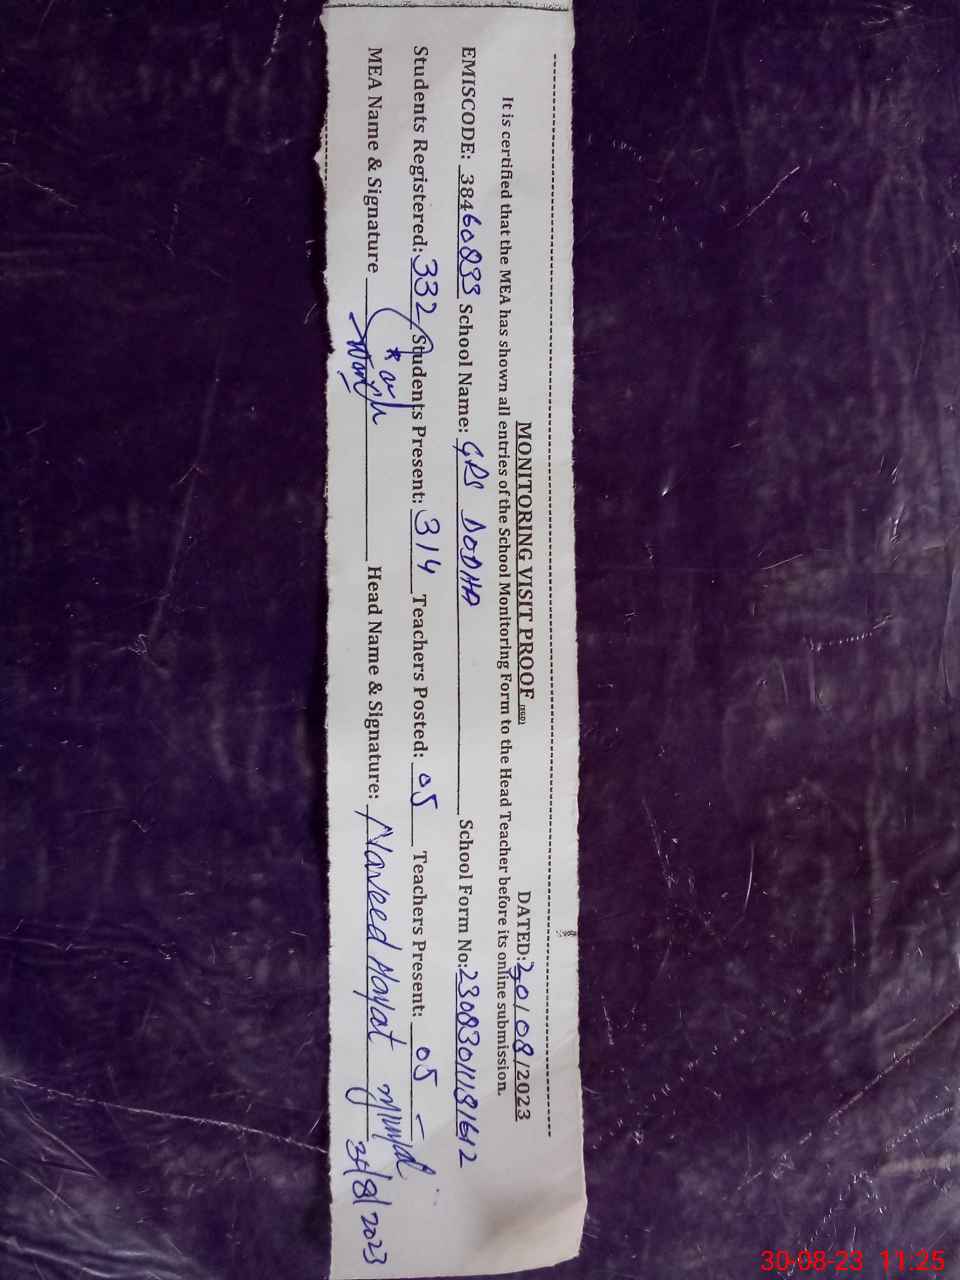 MONITORING VISIT PROOF DATED: 30/08/2023
It is certified that the MEA has shown all entries of the School Monitoring Form to the Head Teacher before its online submission.
EMISCODE: 38460833 School Name: GPS DODHA School Form No: 23083011181612
Students Registered: 332 Students Present: 314 Teachers Posted: 05 Teachers Present: 05
MEA Name & Signature Head Name & Signature: Naveed Hayat
30/8/2023
30-08-23 11:25